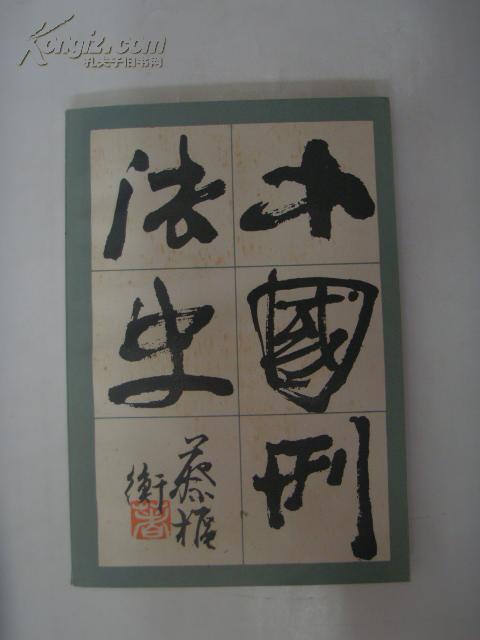 Kongfz.com
孔夫子旧书网
中國刑
法史
蔡樞
衡
著